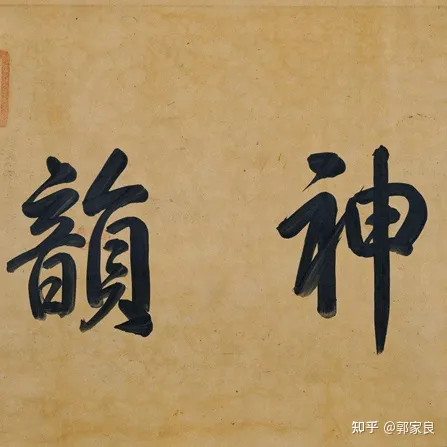 神韻
知乎 @郭家良